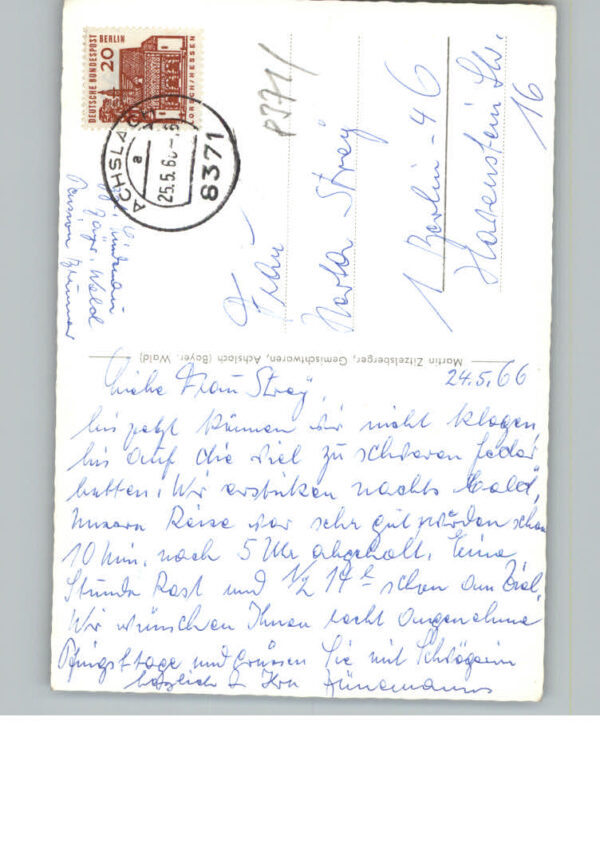 DEUTSCHE BUNDESPOST BERLIN
20
LORSCH/HESSEN
ACHSLACH
a
25.5.66
8371
8371
Lindenau
Bayr. Wald
Pension
Frau
Marta Strey
1 Berlin-46
Havenstein Str.
16
Martin Zitzelsberger, Gemischtwaren, Achslach (Bayer. Wald)
24.5.66
Liebe Frau Strey,
bis jetzt können wir nicht klagen,
bis auf die viel zu schweren Feder
betten. Wir ersticken nachts bald,
Unsere Reise war sehr gut, wurden schon
10 Min. nach 5 Uhr abgeholt. Eine
Stunde Rast und 1/2 14 h schon am Ziel.
Wir wünschen Ihnen recht angenehme
Pfingsttage und Grüssen Sie mit Schwägerin
herzlichst Ihre Hünemanns